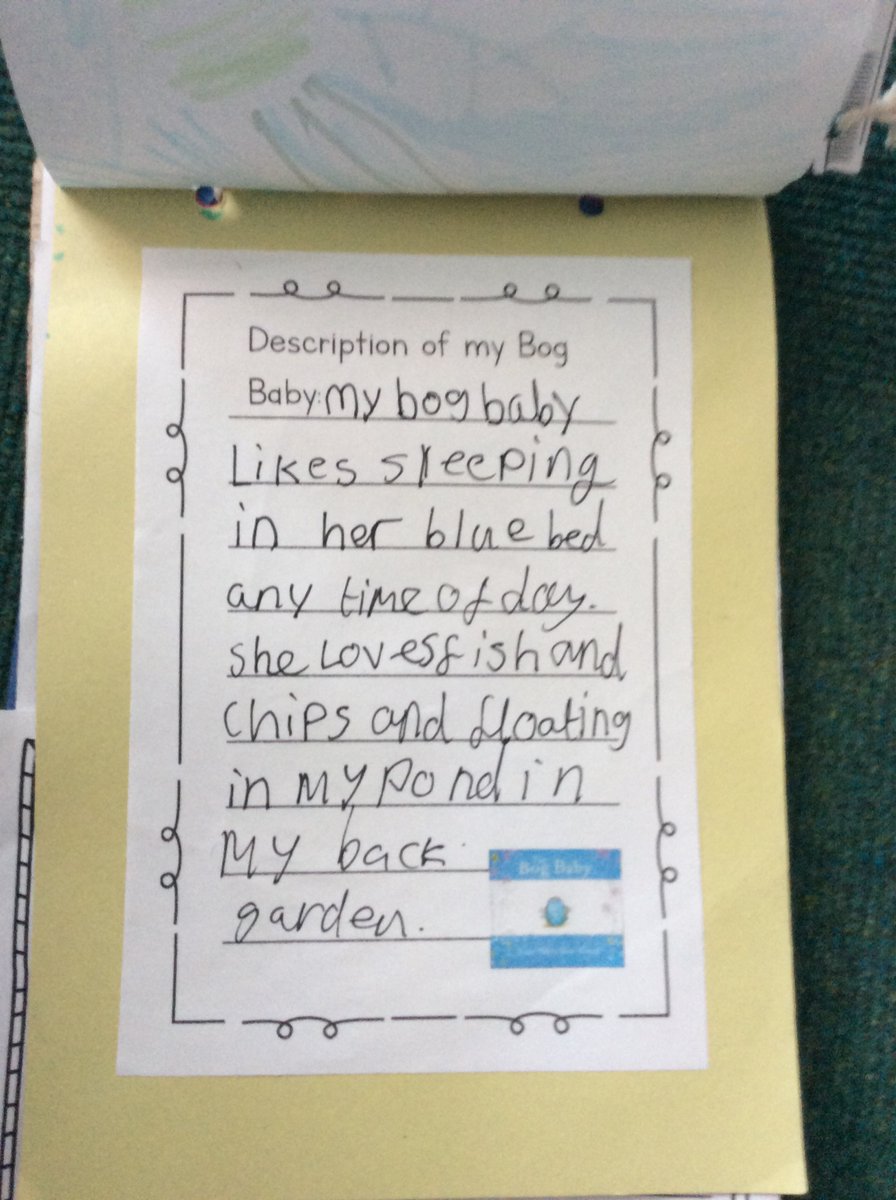 Description of my Bog
Baby: my bog baby
Likes sleeping
in her blue bed
any time of day.
she Loves fish and
chips and floating
in my pond in
My back
garden.
Bog Baby